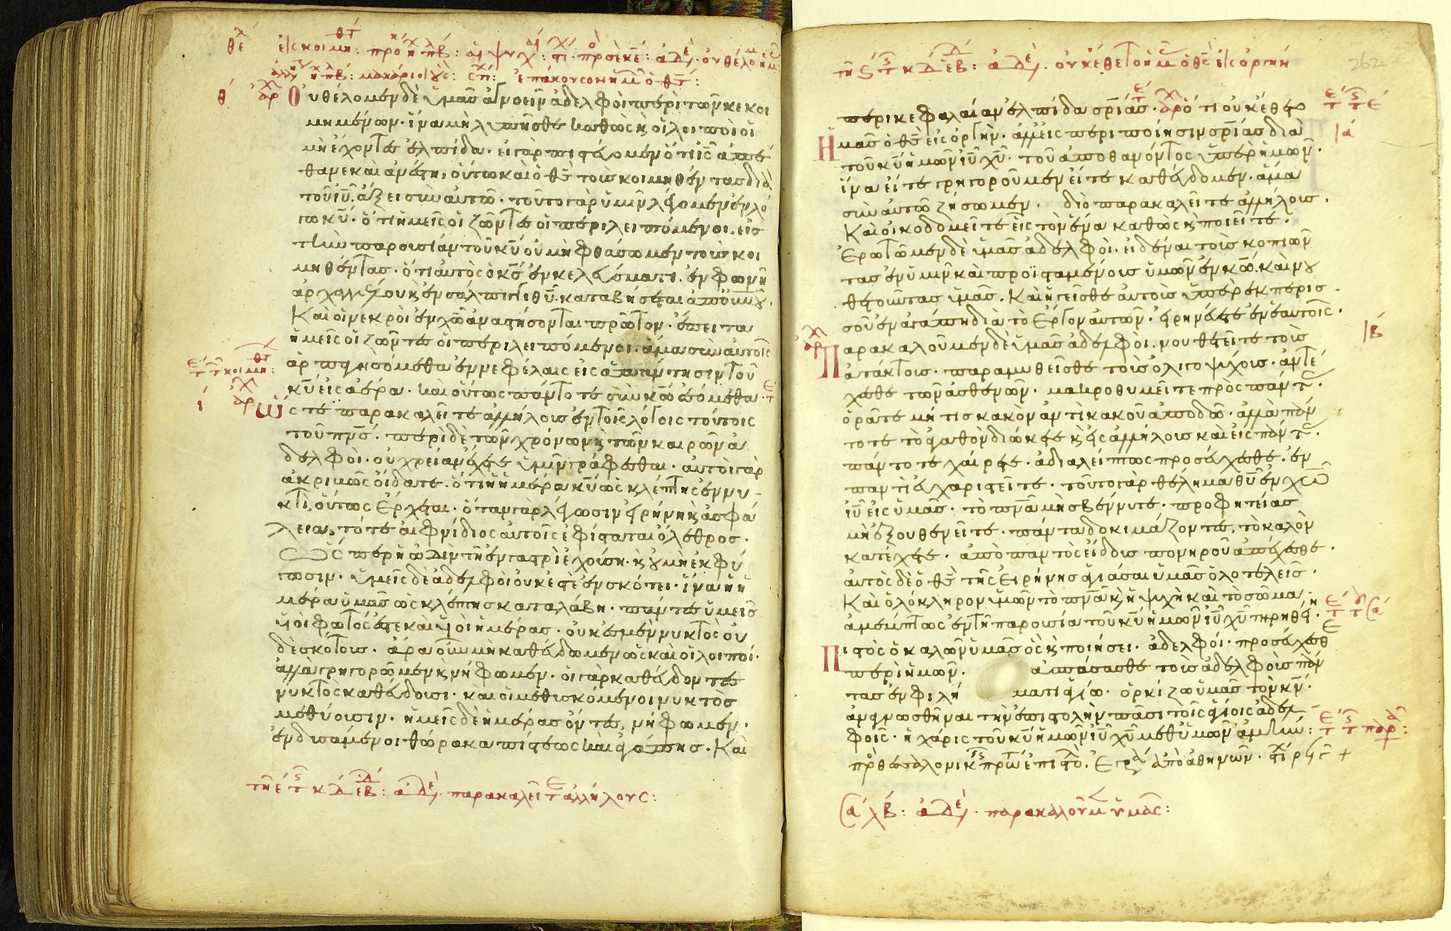 Οὐ θέλομεν δὲ ὑμᾶς ἀγνοεῖν ἀδελφοὶ περὶ τῶν κεκοι
μημένων· ἵνα μὴ λυπῆσθε καθὼς καὶ οἱ λοιποὶ οἱ
μὴ ἔχοντες ἐλπίδα· εἰ γὰρ πιστεύομεν ὅτι ι̅ς̅ ἀπέ
θανε καὶ ἀνέστη, οὕτω καὶ ὁ θ̅ς̅ τοὺς κοιμηθέντας διὰ
τοῦ ι̅υ̅ ἄξει σὺν αὐτῶ· τοῦτο γὰρ ὑμῖν λέγομεν ἐν λό
γω κ̅υ̅· ὅτι ἡμεῖς οἱ ζῶντες οἱ περιλειπόμενοι εἰς
τὴν παρουσίαν τοῦ κ̅υ̅ οὐ μὴ φθάσωμεν τοὺς κοι
μηθέντας· ὅτι αὐτὸς ὁ κ̅ς̅ ἐν κελεύσματι· ἐν φωνῆ
ἀρχαγγέλου καὶ ἐν σάλπιγγι θ̅υ̅ καταβήσεται ἀπ᾽ οὐν̅ου̅·
Καὶ οἱ νεκροὶ ἐν χ̅ω̅ ἀναστήσονται πρῶτον· ἔπειτα
ἡμεῖς οἱ ζῶντες οἱ περιλειπόμενοι· ἅμα σὺν αὐτοῖς
ἁρπαγησόμεθα ἐν νεφέλαις εἰς ἀπάντησιν τοῦ
κ̅υ̅ εἰς ἀέρα· καὶ οὕτως πάντοτε σὺν κ̅ω̅ ἐσόμεθα·
Ὥστε παρακαλεῖτε ἀλλήλους ἐν τοῖς λόγοις τούτοις
τοῦ π̅ν̅ς̅· περὶ δὲ τῶν χρόνων καὶ τῶν καιρῶν ἀ
δελφοί· οὐ χρείαν ἔχετε ὑμῖν γράφεσθαι· αὐτοὶ γὰρ
ἀκριβῶς οἴδατε· ὅτι ἡ ἡμέρα κ̅υ̅ ὡς κλέπτης ἐν νυ
κτὶ, οὕτως ἔρχεται· ὅταν γὰρ λέγωσιν εἰρήνη καὶ ἀσφά
λεια, τότε αἰφνίδιος αὐτοῖς ἐφίσταται ὄλεθρος·
ὥσπερ ἡ ὠδὶν τῆ ἐν γαστρὶ ἐχούση· καὶ οὐ μὴ ἐκφύ
γωσιν· ὑμεῖς δὲ ἀδελφοὶ οὐκ ἐστὲ ἐν σκότει· ἵνα ἡ ἡ
μέρα ὑμᾶς ὡς κλέπτης καταλάβη· πάντες ὑμεῖς
υἱοὶ φωτός ἐστε καὶ υἱοὶ ἡμέρας· οὐκ ἐσμὲν νυκτὸς οὐ
δὲ σκότους· ἄρα οὖν μὴ καθεύδωμεν ὡς καὶ οἱ λοιποί·
ἀλλὰ γρηγορῶμεν καὶ νήφωμεν· οἱ γὰρ καθεύδοντες
νυκτὸς καθεύδουσι· καὶ οἱ μεθυσκόμενοι νυκτὸς
μεθύουσιν· ἡμεῖς δὲ ἡμέρας ὄντες, νήφωμεν·
ἐνδυσάμενοι θώρακα πίστεως καὶ ἀγάπης· Καὶ
παρακαλεῖτ ἀλλήλους:
περικεφαλαίαν ἐλπίδα σ̅ρ̅ίας· ὅτι οὐκ ἔθετο
ἡμᾶς ὁ θ̅ς̅ εἰς ὀργήν· ἀλλ᾽ εἰς περιποίησιν σ̅ρ̅ίας διὰ
τοῦ κ̅υ̅ ἡμῶν ι̅υ̅ χ̅υ̅· τοῦ ἀποθανόντος ὑπὲρ ἡμῶν·
ἵνα εἴτε γρηγοροῦμεν εἴτε καθεύδομεν· ἅμα
σὺν αὐτῶ ζήσωμεν· διὸ παρακαλεῖτε ἀλλήλους·
Καὶ οἰκοδομεῖτε εἷς τὸν ἕνα καθὼς καὶ ποιεῖτε·
Ἐρωτῶμεν δὲ ὑμᾶς ἀδελφοί· εἰδέναι τοὺς κοπιῶν
τας ἐν ὑμῖν καὶ προϊσταμένους ὑμῶν ἐν κ̅ω̅· καὶ νου
θετοῦντας ὑμᾶς. Καὶ ἡγεῖσθε αὐτοὺς ὑπὲρ ἐκπερισ
σοῦ ἐν ἀγάπη διὰ τὸ ἔργον αὐτῶν· εἰρηνεύετε ἐν ἑαυτοῖς·
Παρακαλοῦμεν δὲ ὑμᾶς ἀδελφοί· νουθετεῖτε τοὺς
ἀτάκτους· παραμυθεῖσθε τοὺς ὀλιγοψύχους· ἀντέ
χεσθε τῶν ἀσθενῶν· μακροθυμεῖτε πρὸς πάντ·
ὁρᾶτε μή τις κακὸν ἀντὶ κακοῦ ἀποδῶ· ἀλλὰ πάν
τοτε τὸ ἀγαθὸν διώκετε καὶ εἰς ἀλλήλους καὶ εἰς πάντ·
πάντοτε χαίρετε· ἀδιαλείπτως προσεύχεσθε· ἐν
παντὶ εὐχαριστεῖτε· τοῦτο γὰρ θέλημα θ̅υ̅ ἐν χ̅ω̅
ι̅υ̅ εἰς ὑμᾶς· τὸ π̅ν̅α̅ μὴ σβέννυτε· προφητείας
μὴ ἐξουθενεῖτε· πάντα δοκιμάζοντες, τὸ καλὸν
κατέχετε· ἀπὸ παντὸς εἴδους πονηροῦ ἀπέχεσθε·
αὐτὸς δὲ ὁ θ̅ς̅ τῆς εἰρήνης ἁγιάσαι ὑμᾶς ὁλοτελεῖς·
Καὶ ὁλόκληρον ὑμῶν τὸ π̅ν̅α̅ καὶ ἡ ψυχὴ καὶ τὸ σῶμα·
ἀμέμπτως ἐν τῆ παρουσία τοῦ κ̅υ̅ ἡμῶν ι̅υ̅ χ̅υ̅ τηρηθείη·
Πιστὸς ὁ καλῶν ὑμᾶς ὃς καὶ ποιήσει· ἀδελφοί· προσεύχεσθ
περὶ ἡμῶν· ἀσπάσασθε τοὺς ἀδελφοὺς πάν
τας ἐν φιλήματι ἁγίω· ὁρκίζω ὑμᾶς τὸν κ̅ν̅·
ἀναγνωσθῆναι τὴν ἐπιστολὴν πᾶσι τοῖς ἁγίοις ἀδελ
φοῖς· ἡ χάρις τοῦ κ̅υ̅ ἡμῶν ι̅υ̅ χ̅υ̅ μεθ᾽ ὑμῶν ἀμήν:
παρακαλοῦμ ὑμᾶς: